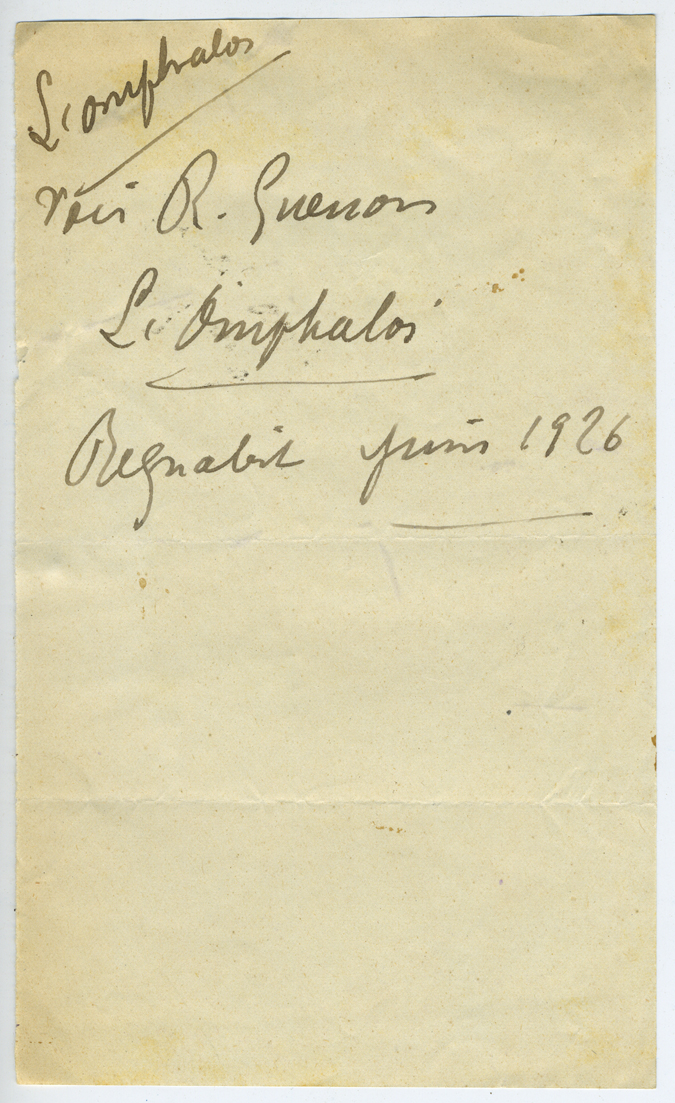 L'omphalos
Voir R. Guenon
L'Omphalos
Regnabit juin 1926